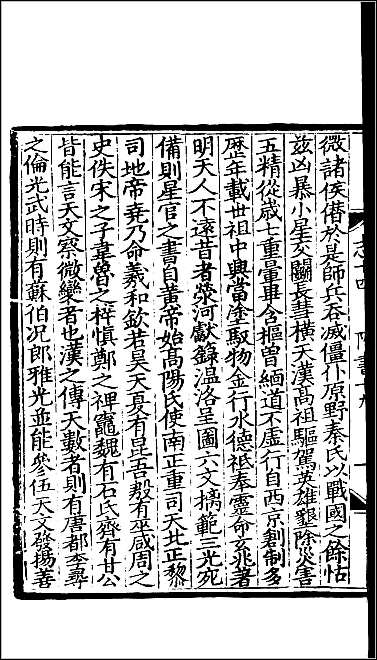 微諸侯僣於是師兵吞滅僵仆原野秦氏以戰國之餘怙
兹凶暴小星交鬬長彗橫天漢高祖驅駕英雄墾除災害
五精從歲七重暈畢含樞曾緬道不虛行自西京創制多
歷年載世祖中興當塗馭物金行水德祗奉靈命玄兆著
明天人不遠昔者滎河獻籙温洛呈圖六文摛範三光宛
備則星官之書自黃帝始高陽氏使南正重司天北正黎
司地帝堯乃命羲和欽若昊天夏有昆吾殷有巫咸周之
史佚宋之子韋魯之梓慎鄭之裨竈魏有石氏齊有甘公
皆能言天文察微變者也漢之傳天數者則有唐都李尋
之倫光武時則有蘇伯况郎雅光並能參伍天文發揚善